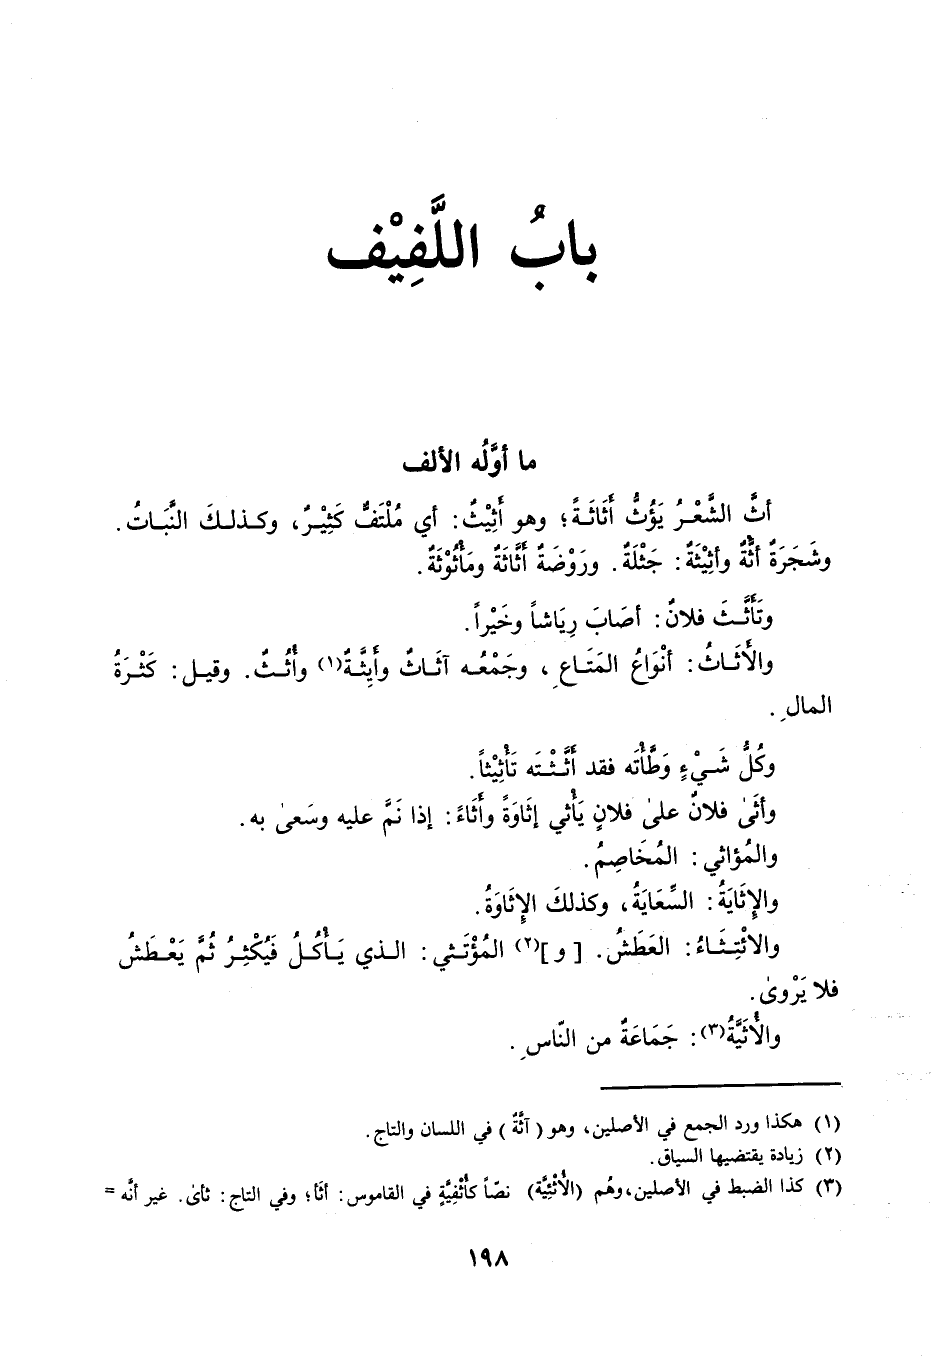 بابُ اللَّفِيْف
ما أوَّلُه الألف
أثَّ الشَّعْرُ يَؤُثُّ أَثَاثَةً؛ وهو أَثِيْثٌ: أي مُلْتَفٌّ كَثِيْرٌ، وكذلكَ النَّبَاتُ.
وشَجَرَةٌ أثَّةٌ وأثِيْثَةٌ: جَثْلَةٌ. ورَوْضَةٌ أَثَّاثَةٌ ومَأْثُوْثَةٌ.
وتَأَثَّثَ فلانٌ: أصَابَ رِيَاشاً وخَيْراً.
والأَثَاثُ: أنْوَاعُ المَتَاعِ، وجَمْعُه آثَاثٌ وأَيِثَّةٌ(١) وأُثُثٌ. وقيل: كَثْرَةُ
المالِ.
وكُلُّ شَيْءٍ وَطَّأْتَه فقد أَثَّثْتَه تَأْثِيْثاً.
وأثىٰ فلانٌ علىٰ فلانٍ يَأْثي إثَاوَةً وأَثَاءً: إذا نَمَّ عليه وسَعىٰ به.
والمُؤاثي: المُخَاصِمُ.
والإِثَايَةُ: السِّعَايَةُ، وكذلكَ الإِثَاوَةُ.
والائْتِثَاءُ: العَطَشُ. [و](٢) المُؤْتَثي: الذي يَأْكُلُ فَيُكْثِرُ ثُمَّ يَعْطَشُ
فلا يَرْوىٰ.
والأُثَيَّةُ(٣): جَمَاعَةٌ من النّاسِ.
(١) هكذا ورد الجمع في الأصلين، وهو (آثَّةٌ) في اللسان والتاج.
(٢) زيادة يقتضيها السياق.
(٣) كذا الضبط في الأصلين، وهُم (الأُثْئِيَّة) نصّاً كأُثْفِيَّةٍ في القاموس: أثَأ؛ وفي التاج: ثأىٰ. غير أنَّه =
١٩٨